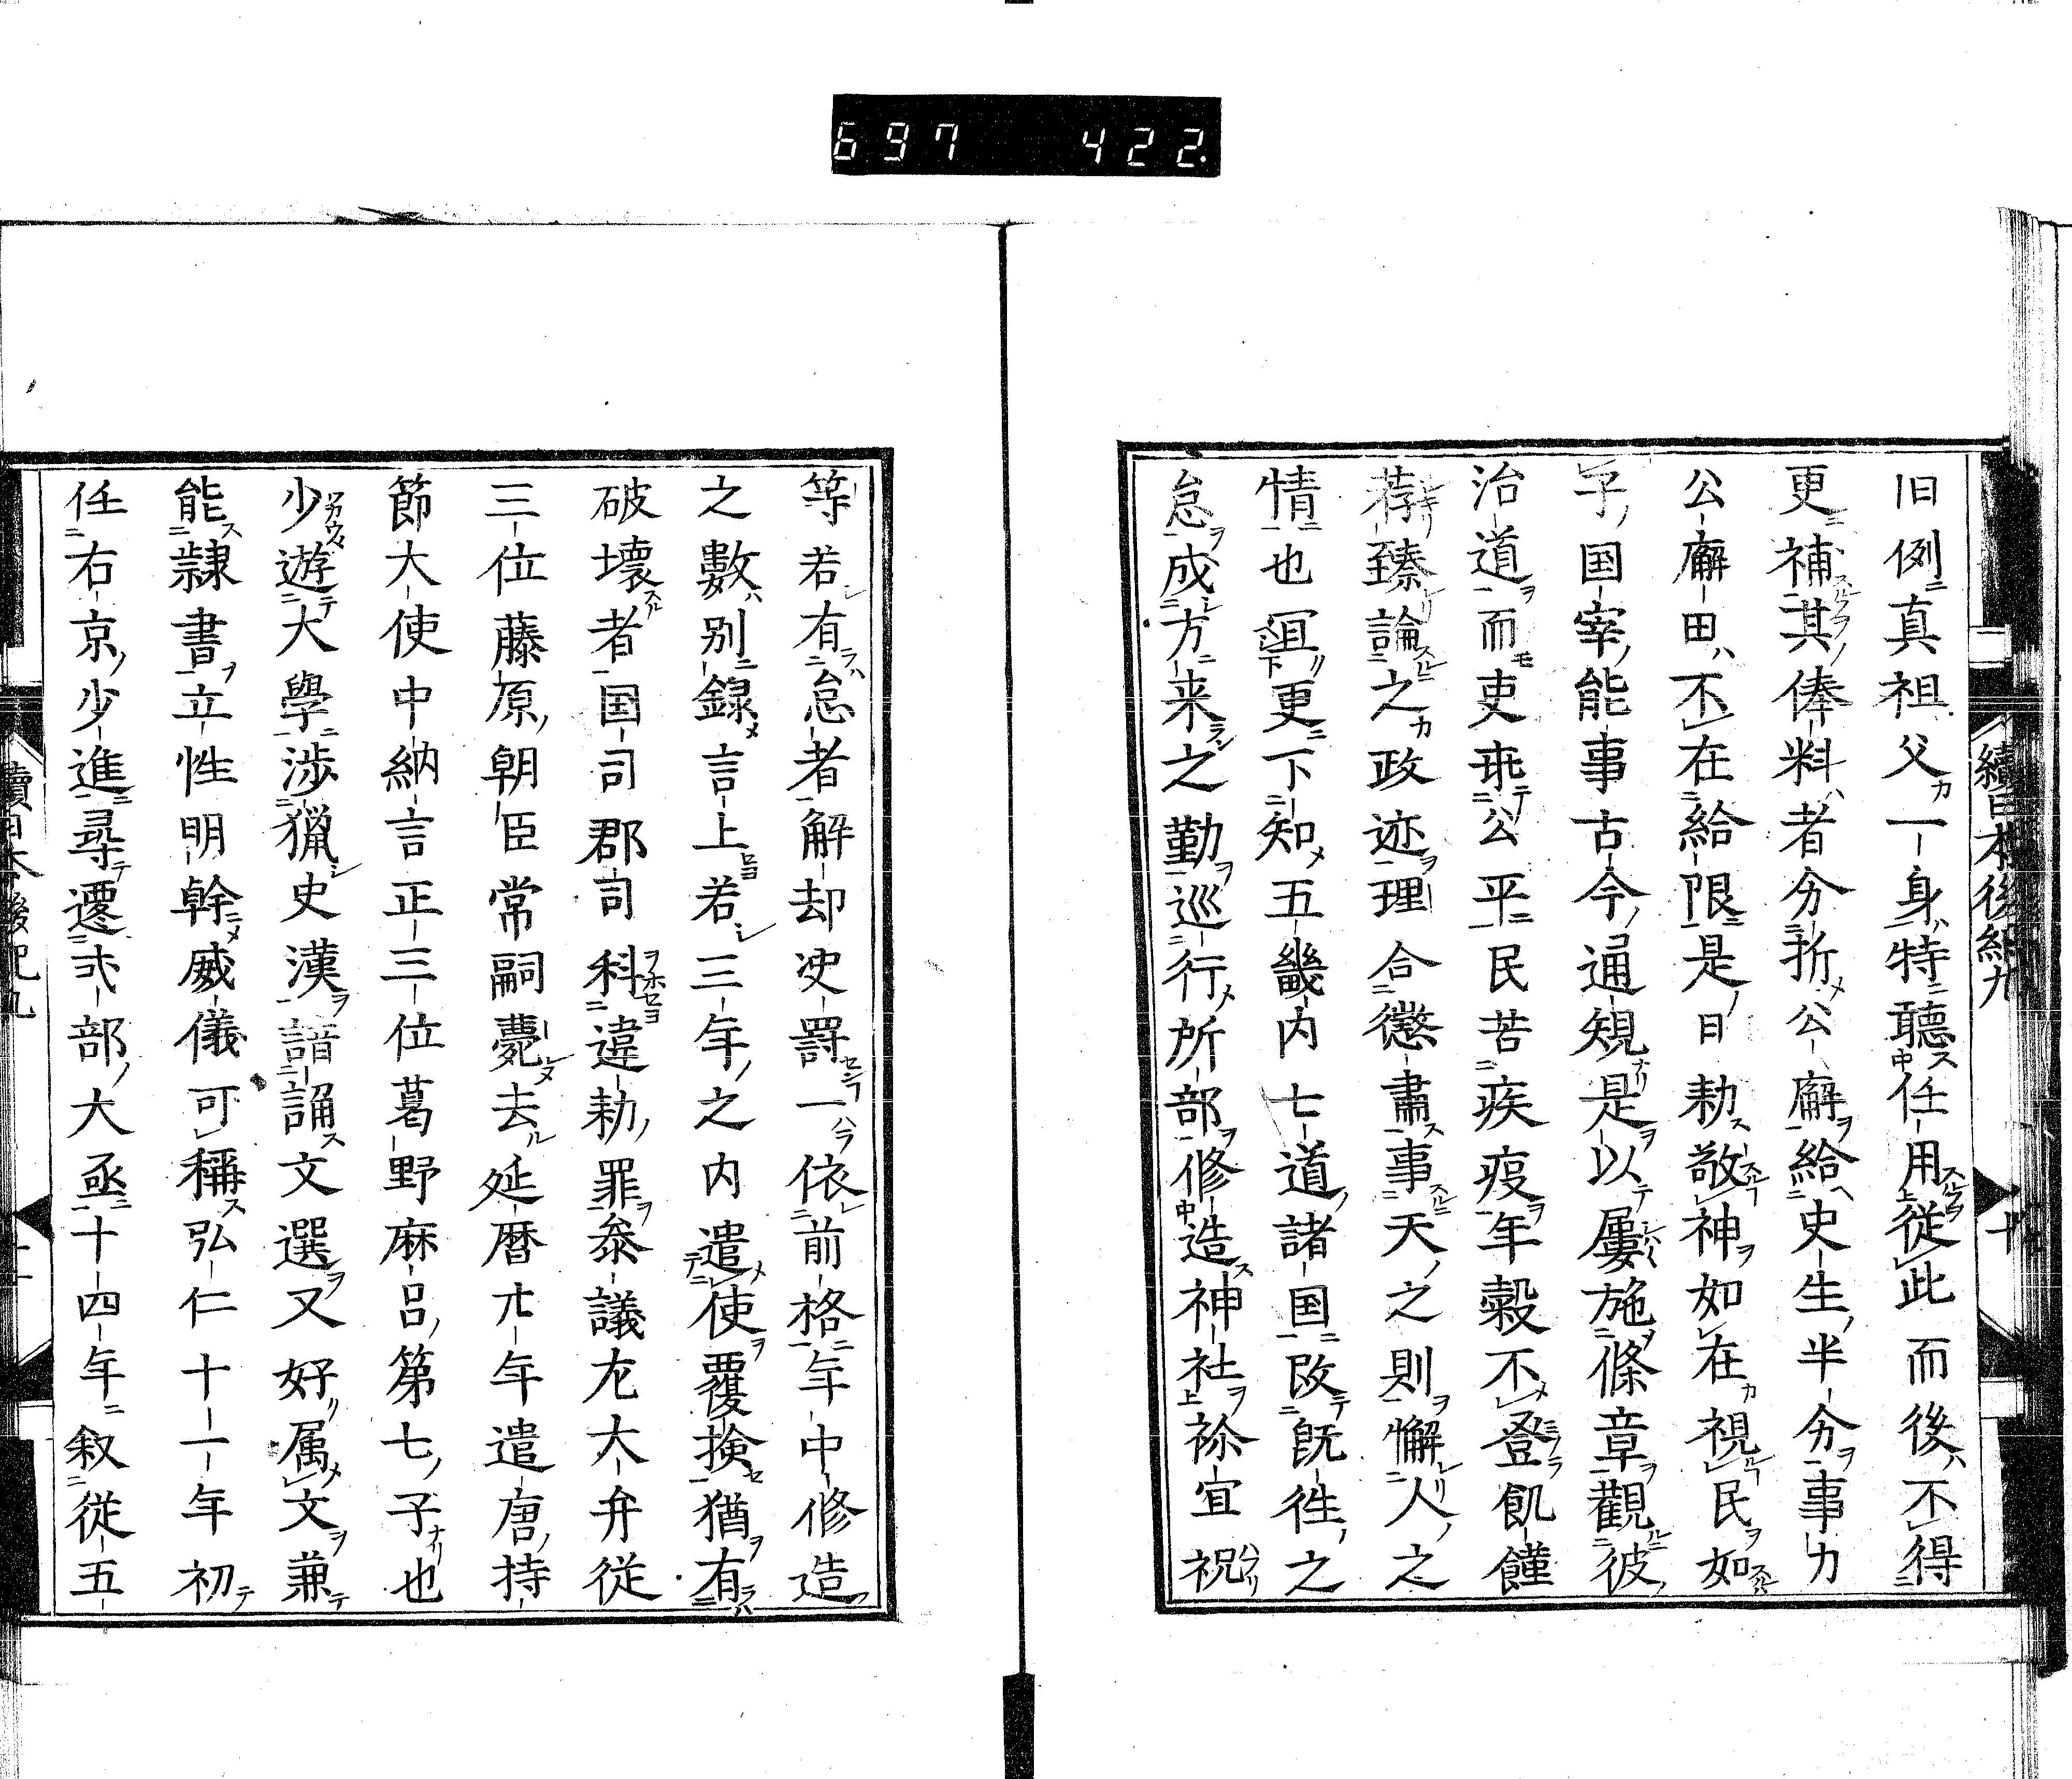 697 422
旧例真祖父一身特聽任用從此而後不得
更補其俸料者分折公廨給史生半分事力
公廨田不在給限是日勑敬神如在視民如
子国宰能事古今通規是以屢施條章觀彼
治道而吏乖公平民苦疾疫年穀不登飢饉
荐臻論之政迹理合懲肅事天之則懈人之
情也冝更下知五畿内七道諸国改既徃之
怠成方来之勤巡行所部修造神社祢宜祝
續日本後紀九
十
等若有怠者解却决罸一依前格年中修造
之數別録言上若三年之内遣使覆検猶有
破壊者国司郡司科違勑罪叅議左大弁從
三位藤原朝臣常嗣薨去延暦廿年遣唐持
節大使中納言正三位葛野麻呂第七子也
少遊大學渉獵史漢諳誦文選又好属文兼
能隷書立性明幹威儀可稱弘仁十一年初
任右京少進尋遷式部大丞十四年叙從五
續日本後紀九